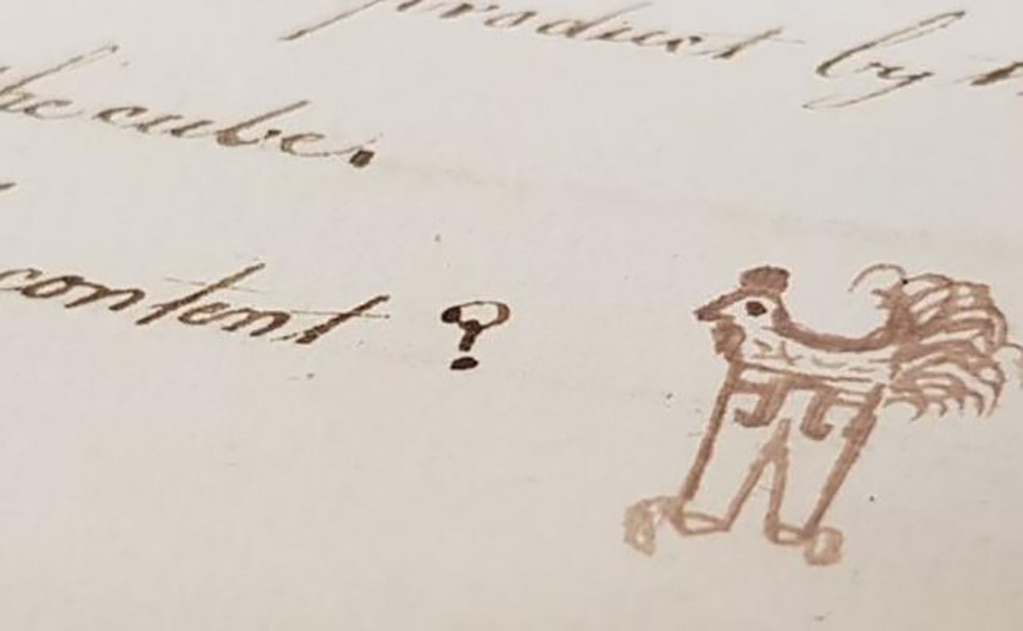 product by
the cube.
content ?